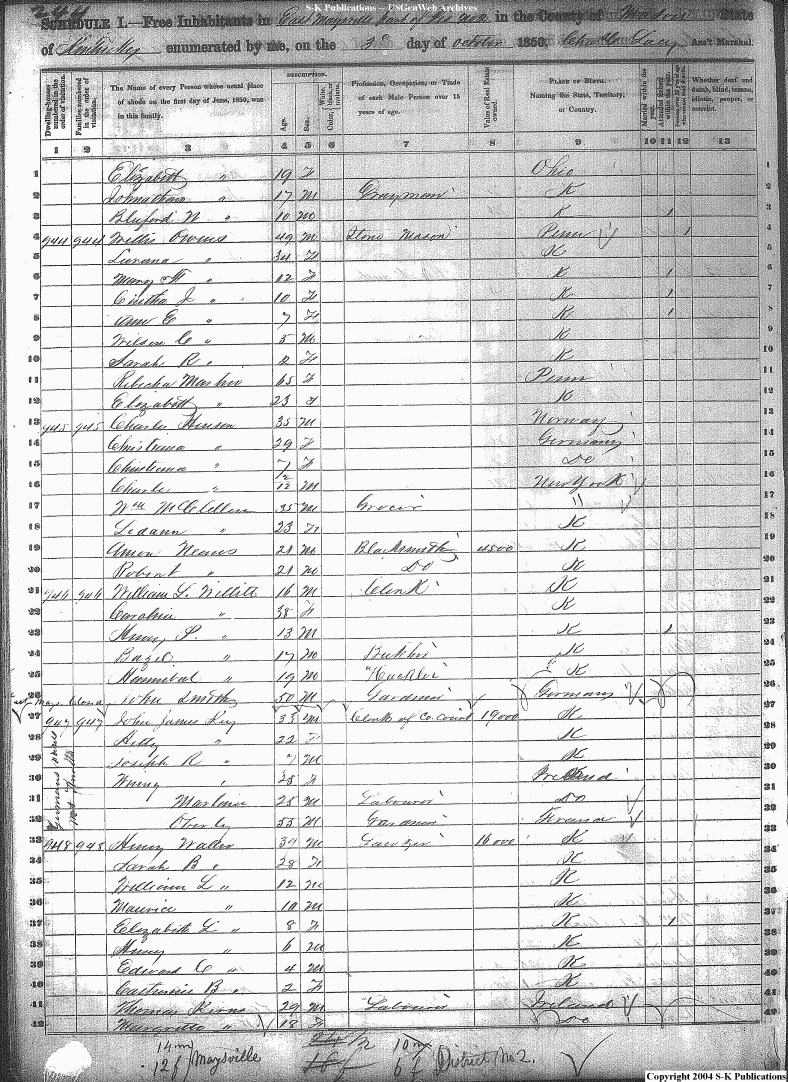 S-K Publications -- USGenWeb Archives
SCHEDULE I.—Free Inhabitants in East Maysville part of in the County of Mason State
of Kentucky enumerated by me, on the 3d day of October 1850. Lacy Ass't Marshal.
DESCRIPTION.
Dwelling-houses numbered in the order of visitation.
Families numbered in the order of visitation.
The Name of every Person whose usual place of abode on the first day of June, 1850, was in this family.
Age.
Sex.
Color, White, black, or mulatto.
Profession, Occupation, or Trade of each Male Person over 15 years of age.
Value of Real Estate owned.
PLACE OF BIRTH. Naming the State, Territory, or Country.
Married within the year.
Attended School within the year.
Persons over 20 y'rs of age who cannot read & write.
Whether deaf and dumb, blind, insane, idiotic, pauper, or convict.
1 2 3 4 5 6 7 8 9 10 11 12 13
1 Elizabeth " 19 F Ohio 1
2 Johnathan " 17 M Drayman K 2
3 Bluford N " 10 M K 1 3
4 944 944 Willis Owens 49 M Stone Mason Penn 1 4
5 Lurana " 34 F K 5
6 Mary F " 12 F K 1 6
7 Cintha J " 10 F K 1 7
8 Ann E " 7 F K 1 8
9 Wilson C " 5 M K 9
10 Sarah R " 2 F K 10
11 Rebecha 65 F Penn 11
12 Elizabeth " 23 F K 12
13 945 945 Charles Hinson 35 M Norway 13
14 Christiana " 29 F Germany 14
15 Christiana " 7 F Do 15
16 Charles " /12 M New York 16
17 Wm McClellan 35 M Grocer " 17
18 Ledann " 23 F K 18
19 Amon 21 M Blacksmith 4500 K 19
20 Robert " 21 M Do K 20
21 946 946 William L. Willett 16 M Clerk K 21
22 Caroline " 38 F K 22
23 Henry P. " 13 M K 1 23
24 Bazel " 17 M Butcher K 24
25 Hannibal " 19 M "Huckler K 25
26 John Smith 50 M Gardener Germany 26
27 947 947 John James Key 33 M Clerk of Co. Court 19000 K 27
28 Hetty " 22 F K 28
29 Joseph R " M K 29
30 " 25 F Ireland 30
31 25 M Labourer Do 31
32 Oberly 55 M Gardener 32
33 948 948 Henry Waller 39 M Lawyer 16000 K 33
34 Sarah B " 28 F K 34
35 William L " 12 M K 35
36 Maurice " 10 M K 36
37 Elizabeth L " 8 F K 1 37
38 Henry " 6 M K 38
39 Edward C " 4 M K 39
40 Catherine B " 2 F K 40
41 Thomas 29 M Labourer Ireland 41
42 " 18 F Do 42
14 m
12 f } Maysville
10 m
6 f } District No 2.
Copyright 2004 S-K Publications